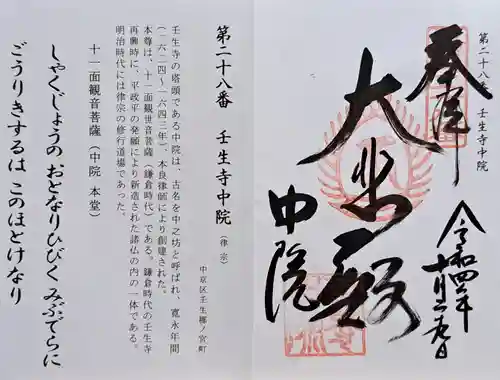 第二十八番 壬生寺中院
奉拝
大悲殿
中院
令和四年
十月二十九日
第二十八番 壬生寺中院（律宗）
中京区壬生梛ノ宮町
壬生寺の塔頭である中院は、古名を中之坊と呼ばれ、寛永年間
（一六二四〜一六四三年）、本良律師により創建された。
本尊は、十一面観世音菩薩（鎌倉時代）である。鎌倉時代の壬生寺
再興時に、平政平の発願により新造された諸仏の内の一体である。
明治時代には律宗の修行道場であった。
十一面観音菩薩（中院 本堂）
しゃくじょうの おとなりひびく みぶでらに
ごうりきするは このほとけなり